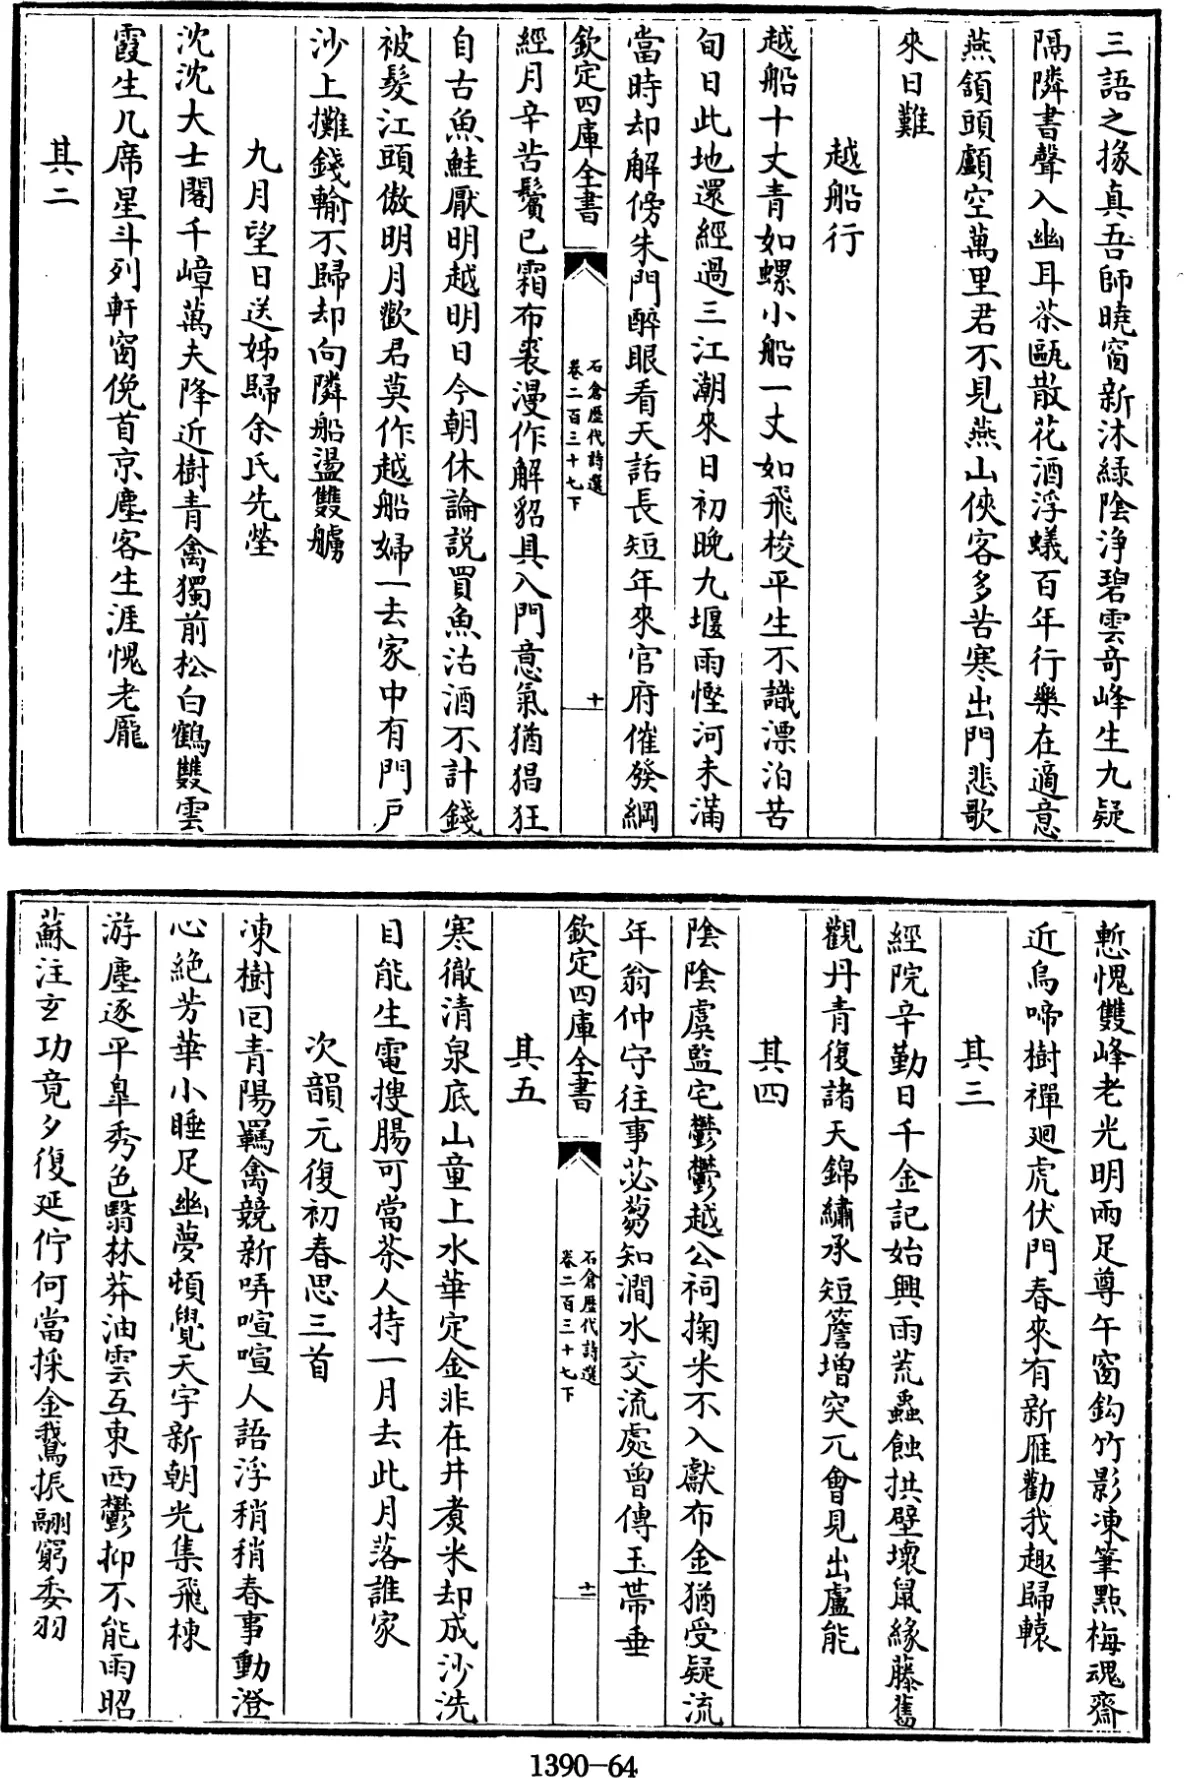 三語之掾真吾師曉窗新沐緑陰淨碧雲竒峰生九疑
隔隣書聲入幽耳茶甌散花酒浮蟻百年行樂在適意
燕頷頭顱空萬里君不見燕山俠客多苦寒出門悲歌
來日難
越船行
越船十丈青如螺小船一丈如飛梭平生不識漂泊苦
旬日此地還經過三江潮來日初晚九堰雨慳河未滿
當時却解傍朱門醉眼看天話長短年來官府催發綱
欽定四庫全書
石倉歷代詩選
卷二百三十七下
十
經月辛苦鬢已霜布裘漫作解貂具入門意氣猶猖狂
自古魚鮭厭明越明日今朝休論説買魚沽酒不計錢
被髮江頭傲明月歡君莫作越船婦一去家中有門戶
沙上攤錢輸不歸却向隣船盪雙艣
九月望日送姊歸余氏先塋
沈沈大士閣千嶂萬夫降近樹青禽獨前松白鶴雙雲
霞生几席星斗列軒窗俛首京塵客生涯愧老龐
其二
慙愧雙峰老光明兩足尊午窗鈎竹影凍筆點梅魂齋
近鳥啼樹禪廻虎伏門春來有新雁勸我趣歸轅
其三
經院辛勤日千金記始興雨荒蟲蝕拱壁壞鼠緣藤舊
觀丹青復諸天錦繡承短簷增突兀會見出盧能
其四
陰陰虞監宅鬱鬱越公祠掬米不入獻布金猶受疑流
年翁仲守往事苾蒭知澗水交流處曾傳玉帶垂
欽定四庫全書
石倉歷代詩選
卷二百三十七下
十一
其五
寒徹清泉底山童上水華定金非在井煑米却成沙洗
目能生電搜腸可當茶人持一月去此月落誰家
次韻元復初春思三首
凍樹囘青陽羈禽競新哢喧喧人語浮稍稍春事動澄
心絶芳華小睡足幽夢頓覺天宇新朝光集飛棟
游塵逐平臯秀色翳林莽油雲互東西鬱抑不能雨昭
蘇注玄功竟夕復延佇何當採金鵞振翮窮委羽
1390-64